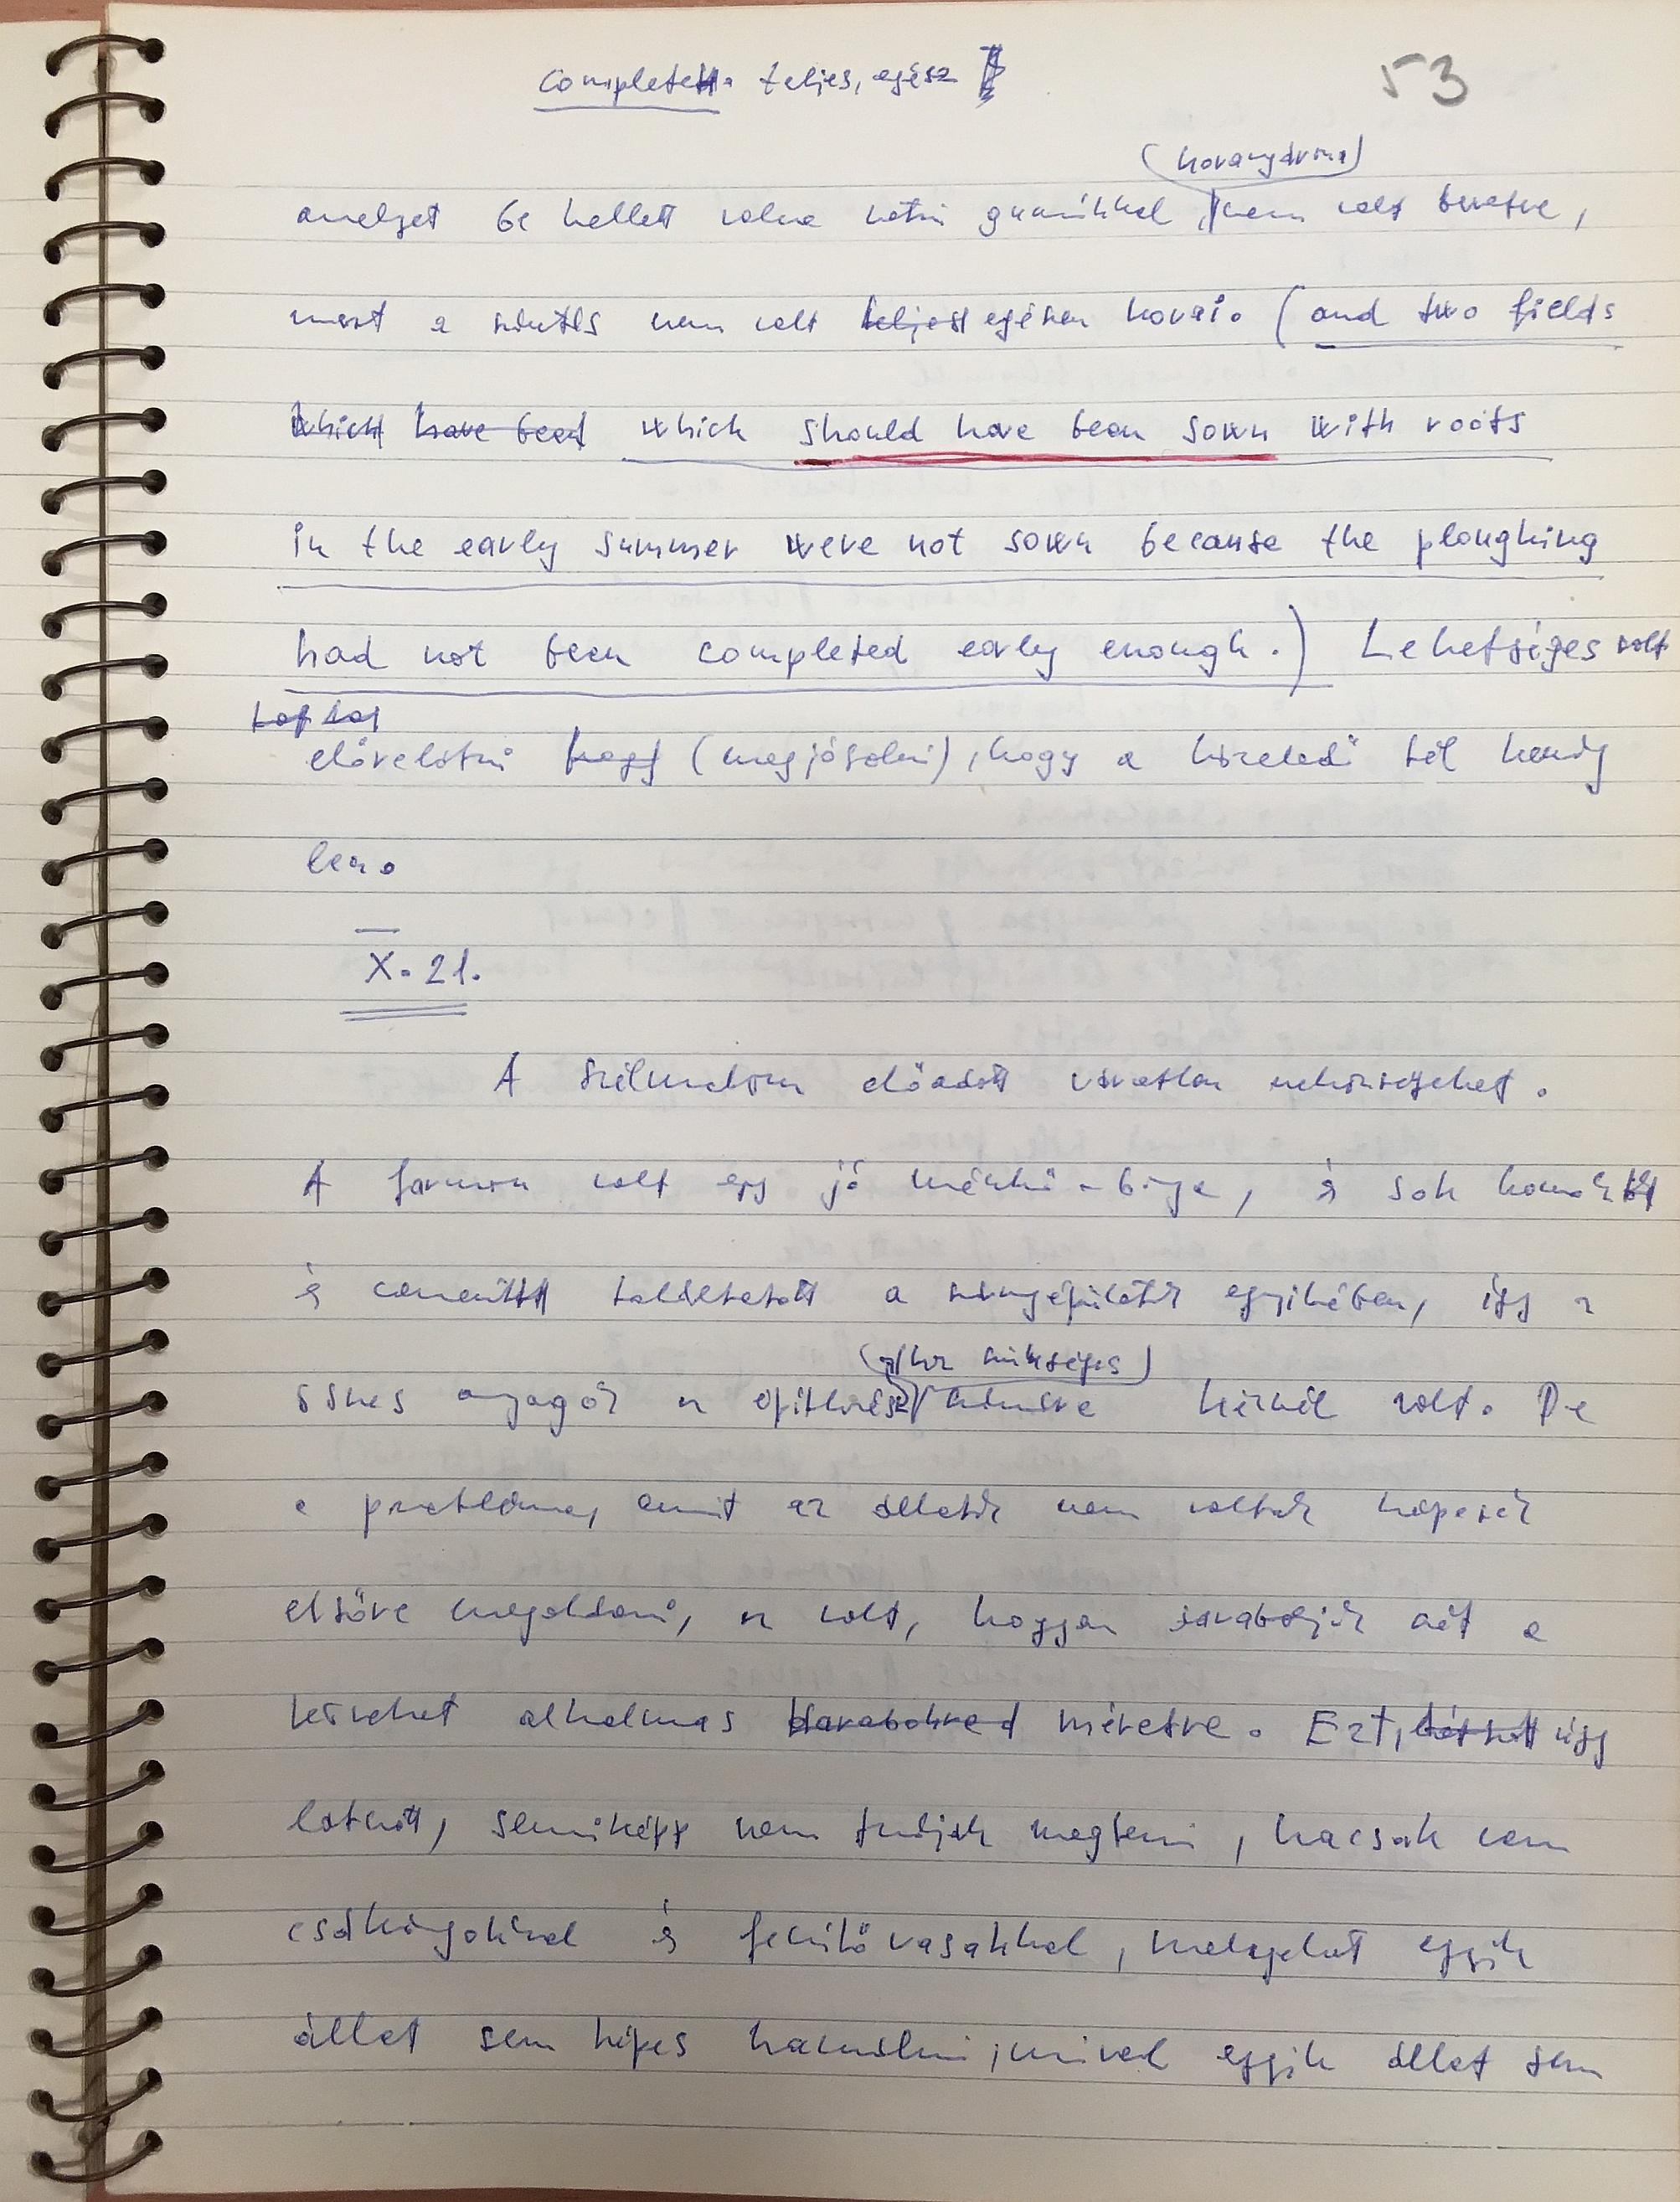 complete: teljes, egész
53
(koranyáron)
amelyet be kellett volna vetni gumókkal, nem volt bevetve,
mert a szántás nem volt teljes egészen korai. (and two fields
which have been which should have been sown with roots
in the early summer were not sown because the ploughing
had not been completed early enough.) Lehetséges volt
elővelátni hogy (megjósolni), hogy a közeledő tél kemény
lesz.
X. 21.
A szélmalom előadott váratlan nehézségeket.
A farmon volt egy jó mészkő-bánya, és sok homok
és cement találtatott a melléképületek egyikében, így a
(szükséges)
összes anyag az építkezés kéznél volt. De
a probléma, amit az állatok nem voltak képesek
elsőre megoldani, az volt, hogyan darabolják szét a
köveket alkalmas darabokra méretre. Ezt, látszott úgy
látszott, semiképp nem tudják megtenni, hacsak nem
csákányokkal és feszítővasakkal, melyeket egyik
állat sem képes használni, mivel egyik állat sem